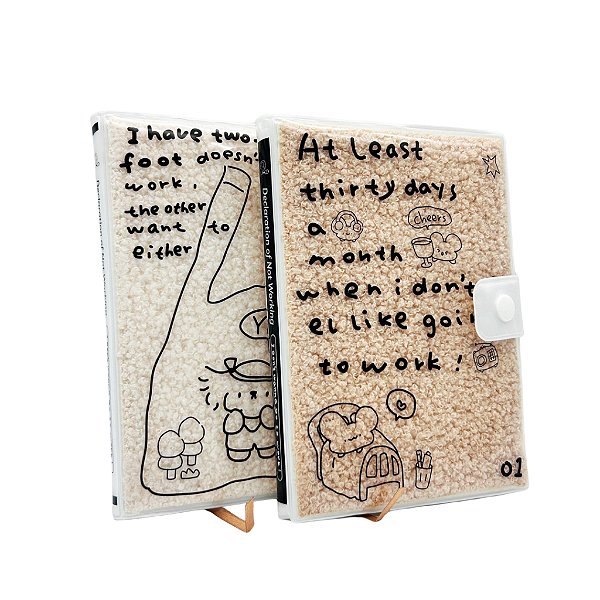 I have two
foot doesn't
work,
the other
want to
either
Declaration of Not Working
At Least
thirty days
a
cheers
month
when i don't
el like goi
to work!
01